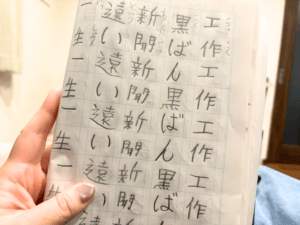 工作工作工作工作
黒ばん黒ばん黒ばん
新聞新聞新聞新聞新
遠い遠い遠い遠い遠
一生一生一生一生一